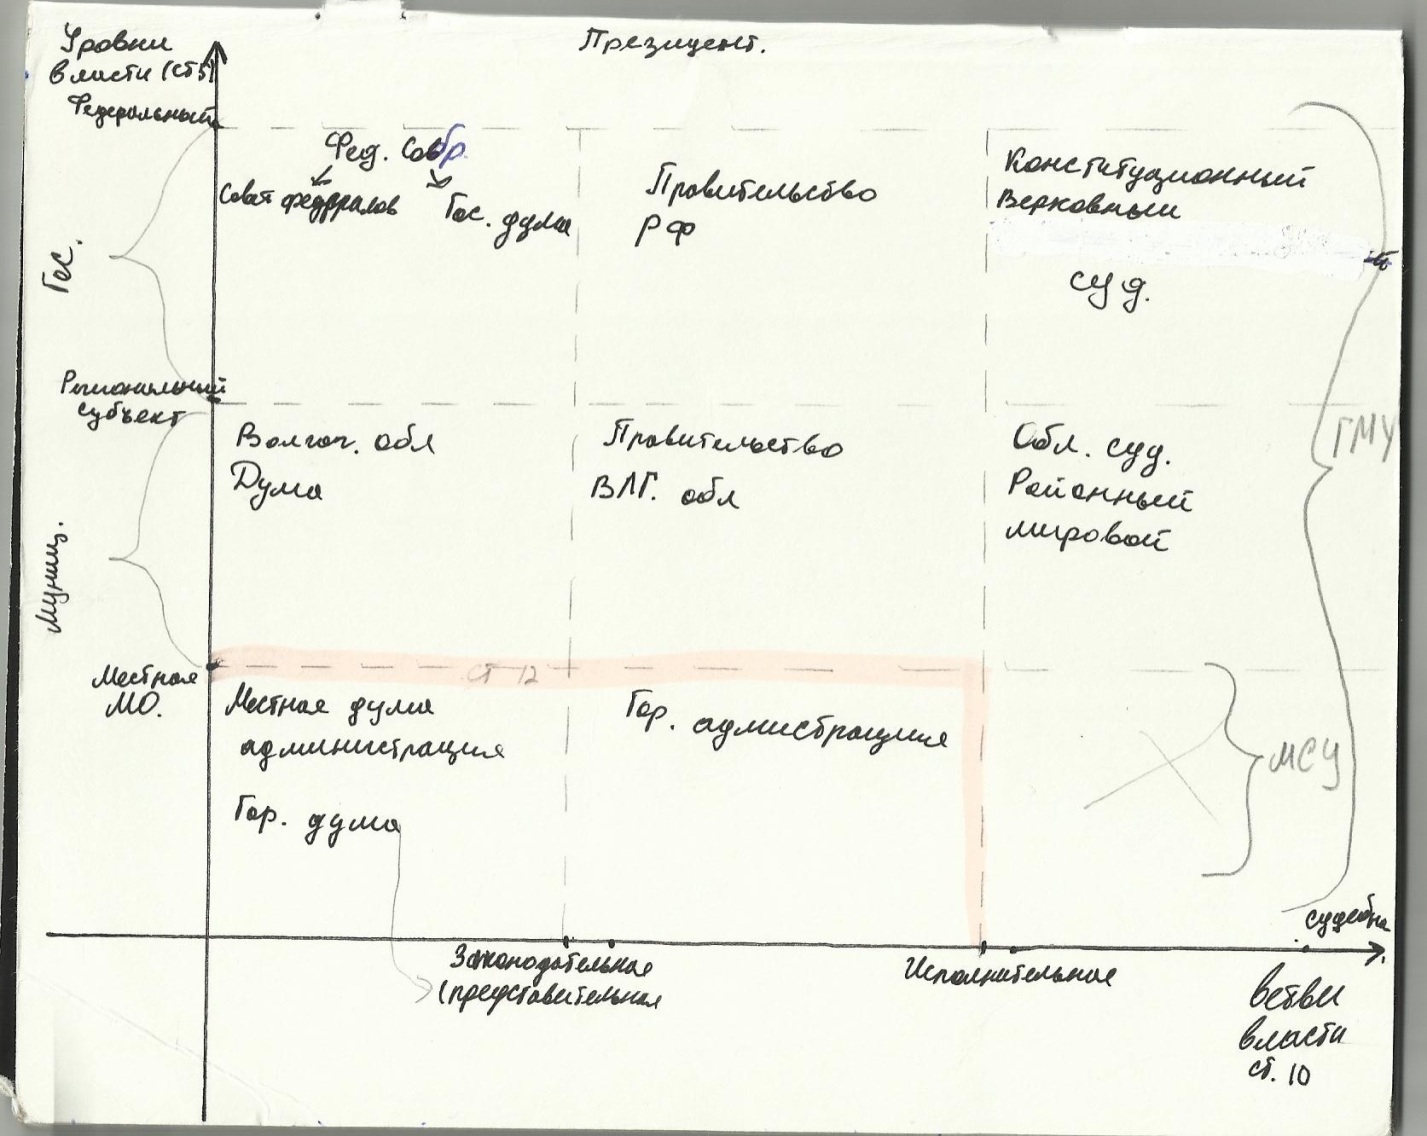 Уровни
власти (ст5)
Президент.
Федеральный
Фед. Собр.
Совет федералов
Гос. дума
Правительство
РФ
Конституционный
Верховный
суд.
Гос.
Региональный
субъект
Волгог. обл
Дума
Правительство
ВЛГ. обл
Обл. суд.
Районный
мировой
ГМУ
Муниц.
ст 12
Местная
МО.
Местная дума
администрация
Гор. дума
Гор. адмистрация
МСУ
судебна
Законодательная
(представительная
Исполнительная
ветви
власти
ст. 10